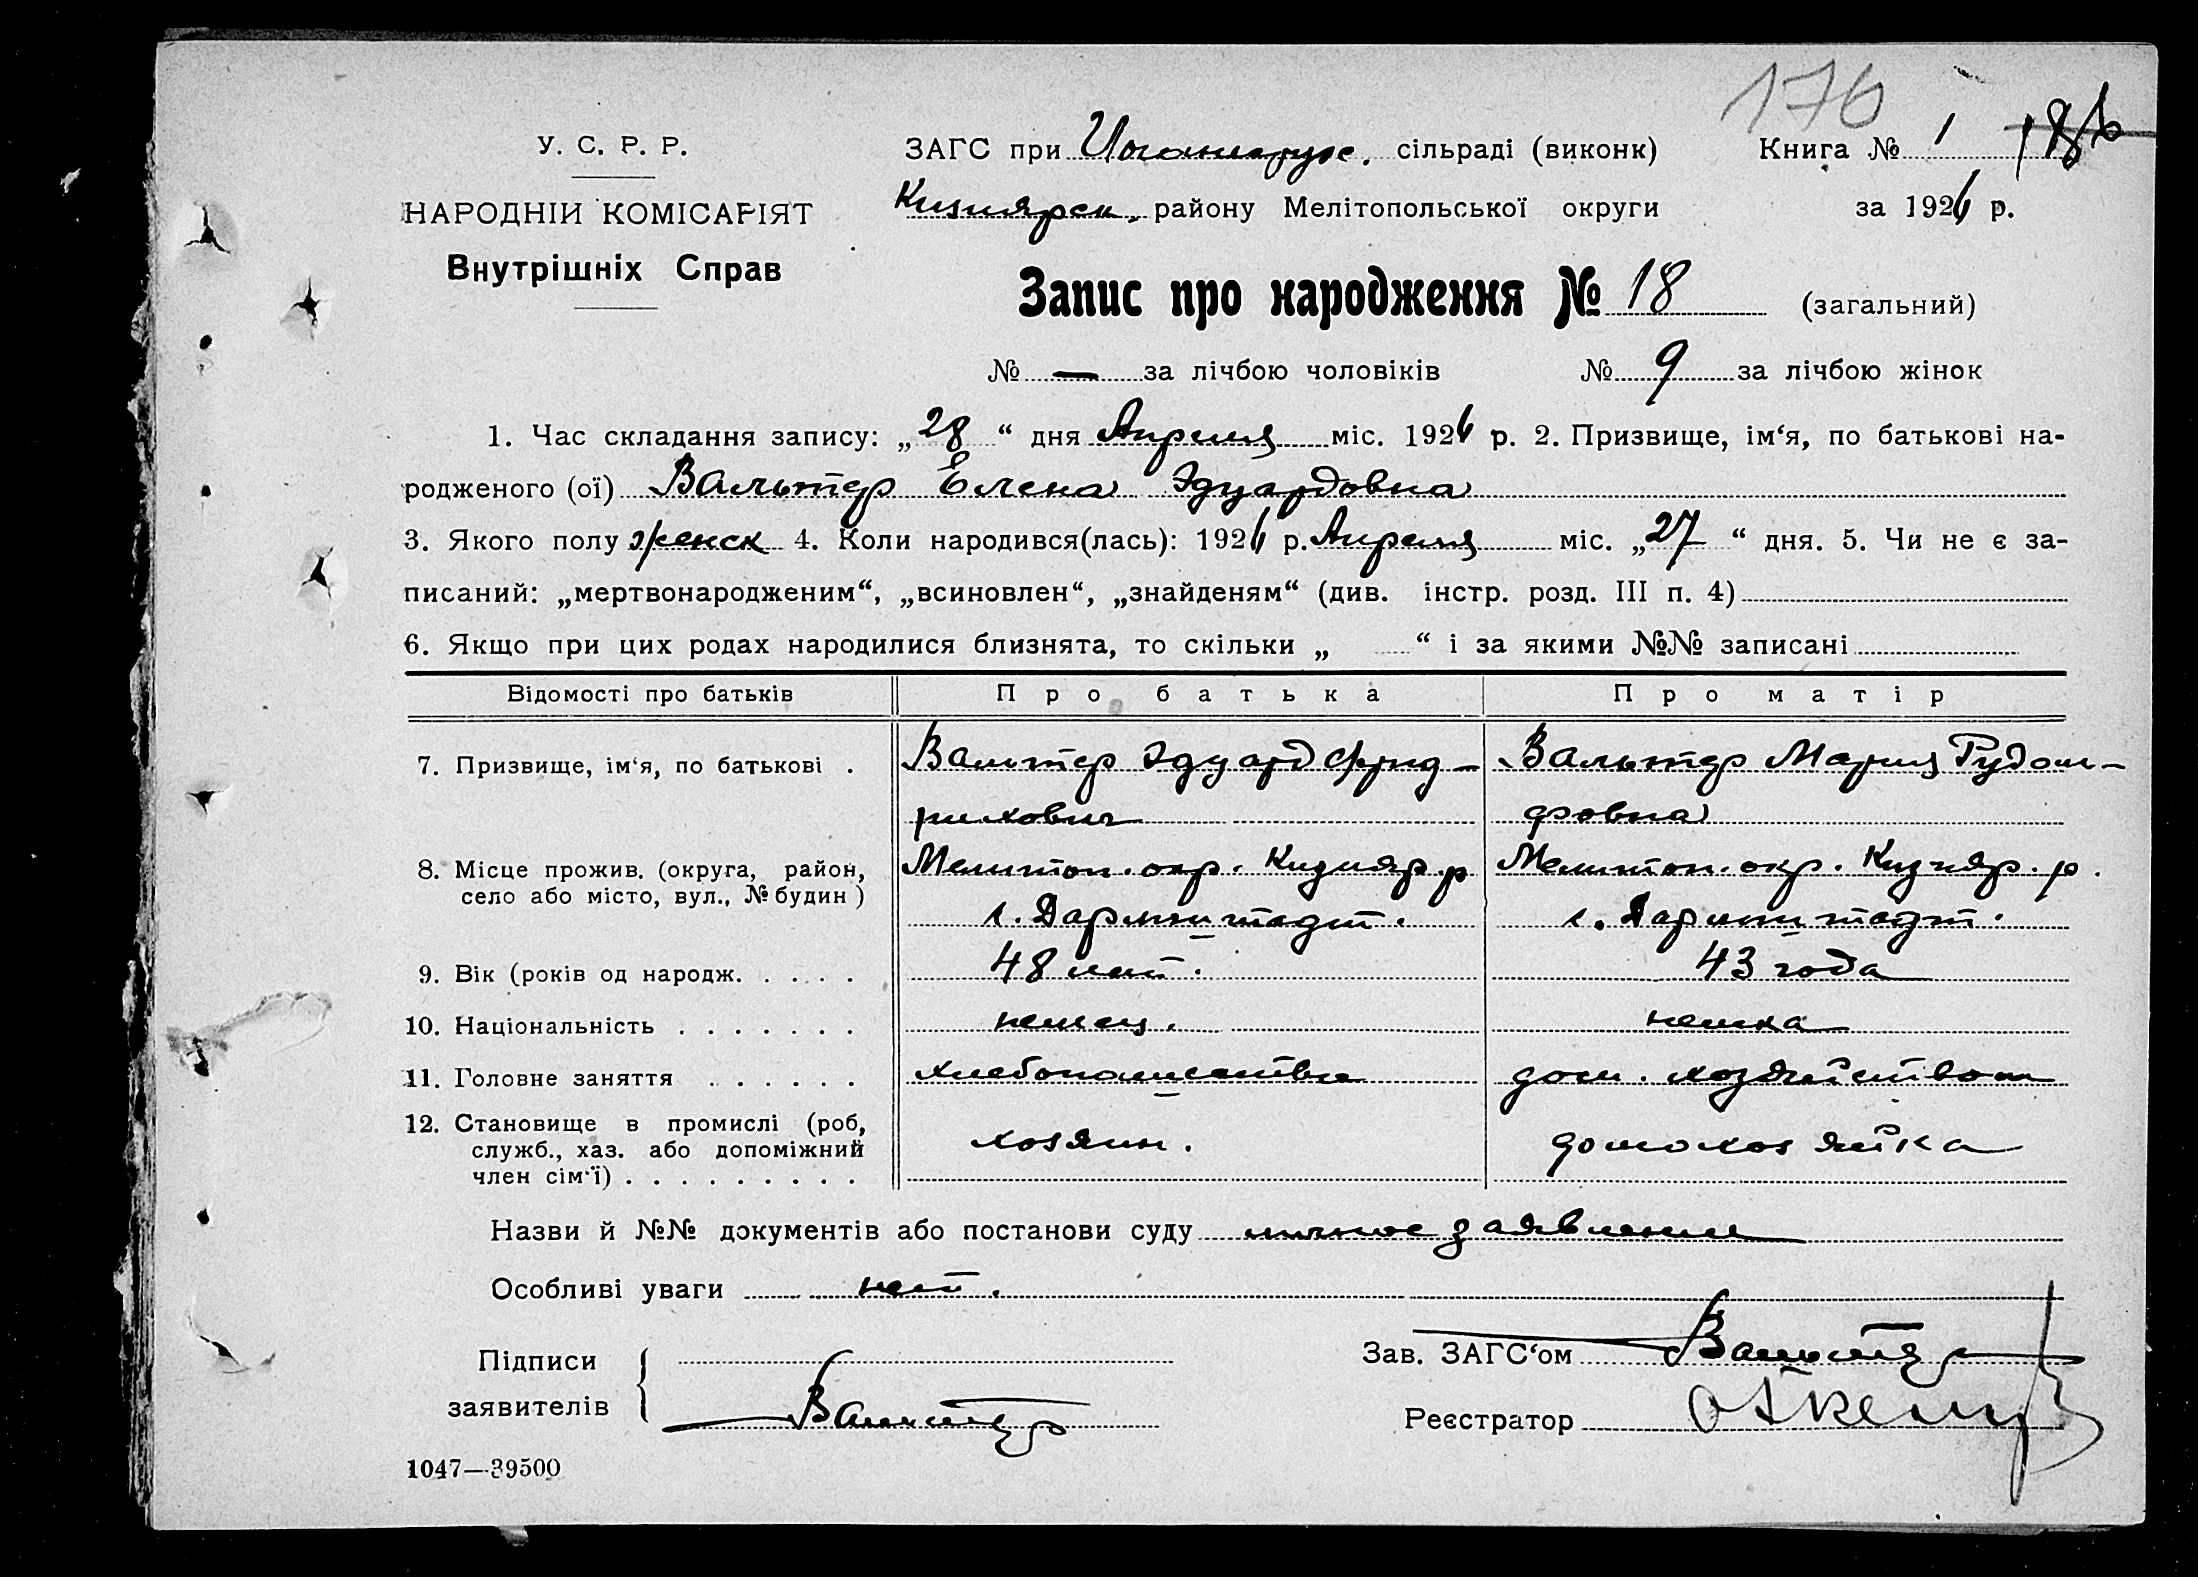 176
У. С. Р. Р.
НАРОДНІЙ КОМІСАРІЯТ
Внутрішніх Справ
ЗАГС при Иоганнерус. сільраді (виконк) Книга № 1 186
Кизиярск. району Мелітопольської округи за 1926 р.
Запис про народження № 18 (загальний)
№ — за лічбою чоловіків № 9 за лічбою жінок
1. Час складання запису: „28“ дня Апреля міс. 1926 р. 2. Призвище, ім‘я, по батькові на-
родженого (ої) Вальтер Елена Эдуардовна
3. Якого полу женск 4. Коли народився(лась): 1926 р. Апреля міс. „27“ дня. 5. Чи не є за-
писаний: „мертвонародженим“, „всиновлен“, „знайденям“ (див. інстр. розд. III п. 4)
6. Якщо при цих родах народилися близнята, то скільки „ “ і за якими №№ записані
Відомості про батьків Про батька Про матір
7. Призвище, ім‘я, по батькові . Вальтер Эдуард Фрид- Вальтер Мария Рудоль-
рихович фовна
8. Місце прожив. (округа, район, Мелитоп. окр. Кизияр. р Мелитоп. окр. Кизияр. р.
село або місто, вул., № будин ) с. Дармштадт. с. Дармштадт.
9. Вік (років од народж. . . . . 48 лет. 43 года
10. Національність . . . . . . . немец. немка
11. Головне заняття . . . . . . хлебопашество дом. хозяйством
12. Становище в промислі (роб,
служб., хаз. або допоміжний хозяин. домохозяйка
член сім‘ї) . . . . . . . . .
Назви й №№ документів або постанови суду личное заявление
Особливі уваги нет.
Підписи
заявителів Вальтер
Зав. ЗАГС‘ом Вальтер
Реєстратор
1047—39500